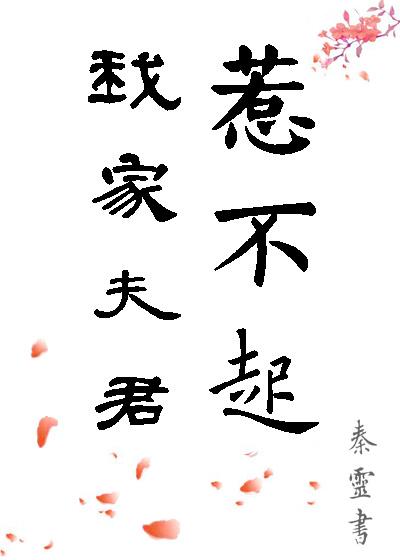 惹不起
我家夫君
秦靈書